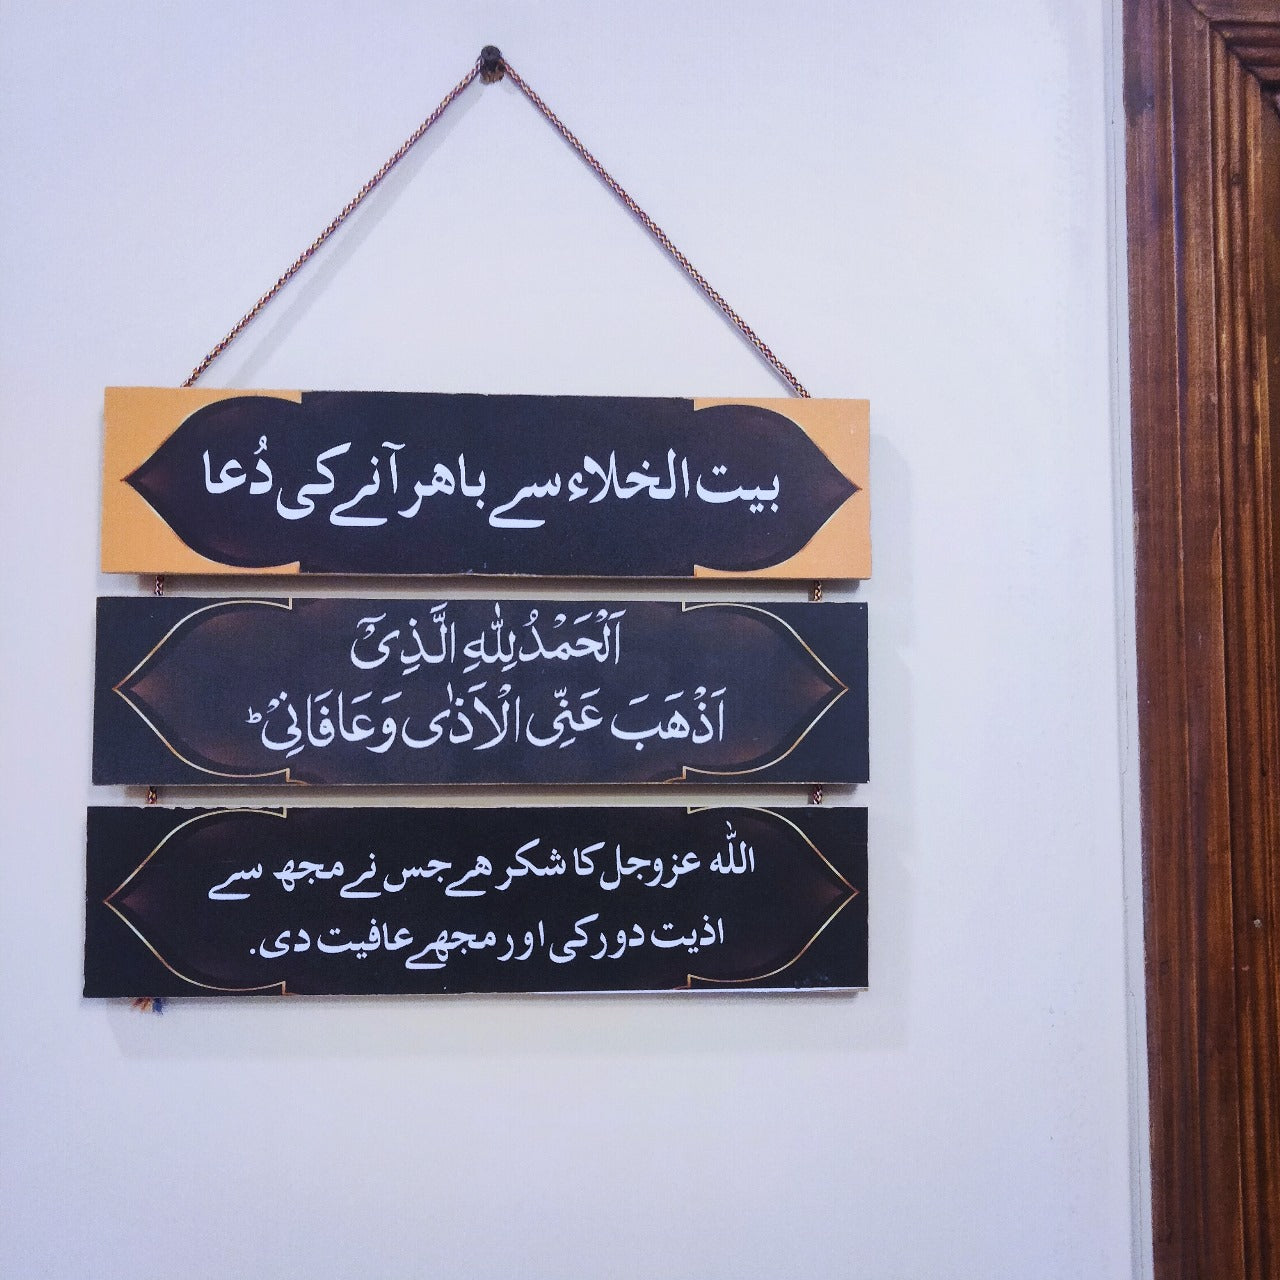 بیت الخلاء سے باھر آنے کی دُعا
اَلْحَمْدُ لِلّٰهِ الَّذِیْۤ
اَذْهَبَ عَنِّی الْاَذٰی وَعَافَانِیْ ؕ
اللّٰه عزوجل کا شکر ھے جس نے مجھ سے
اذیت دور کی اور مجھے عافیت دی.